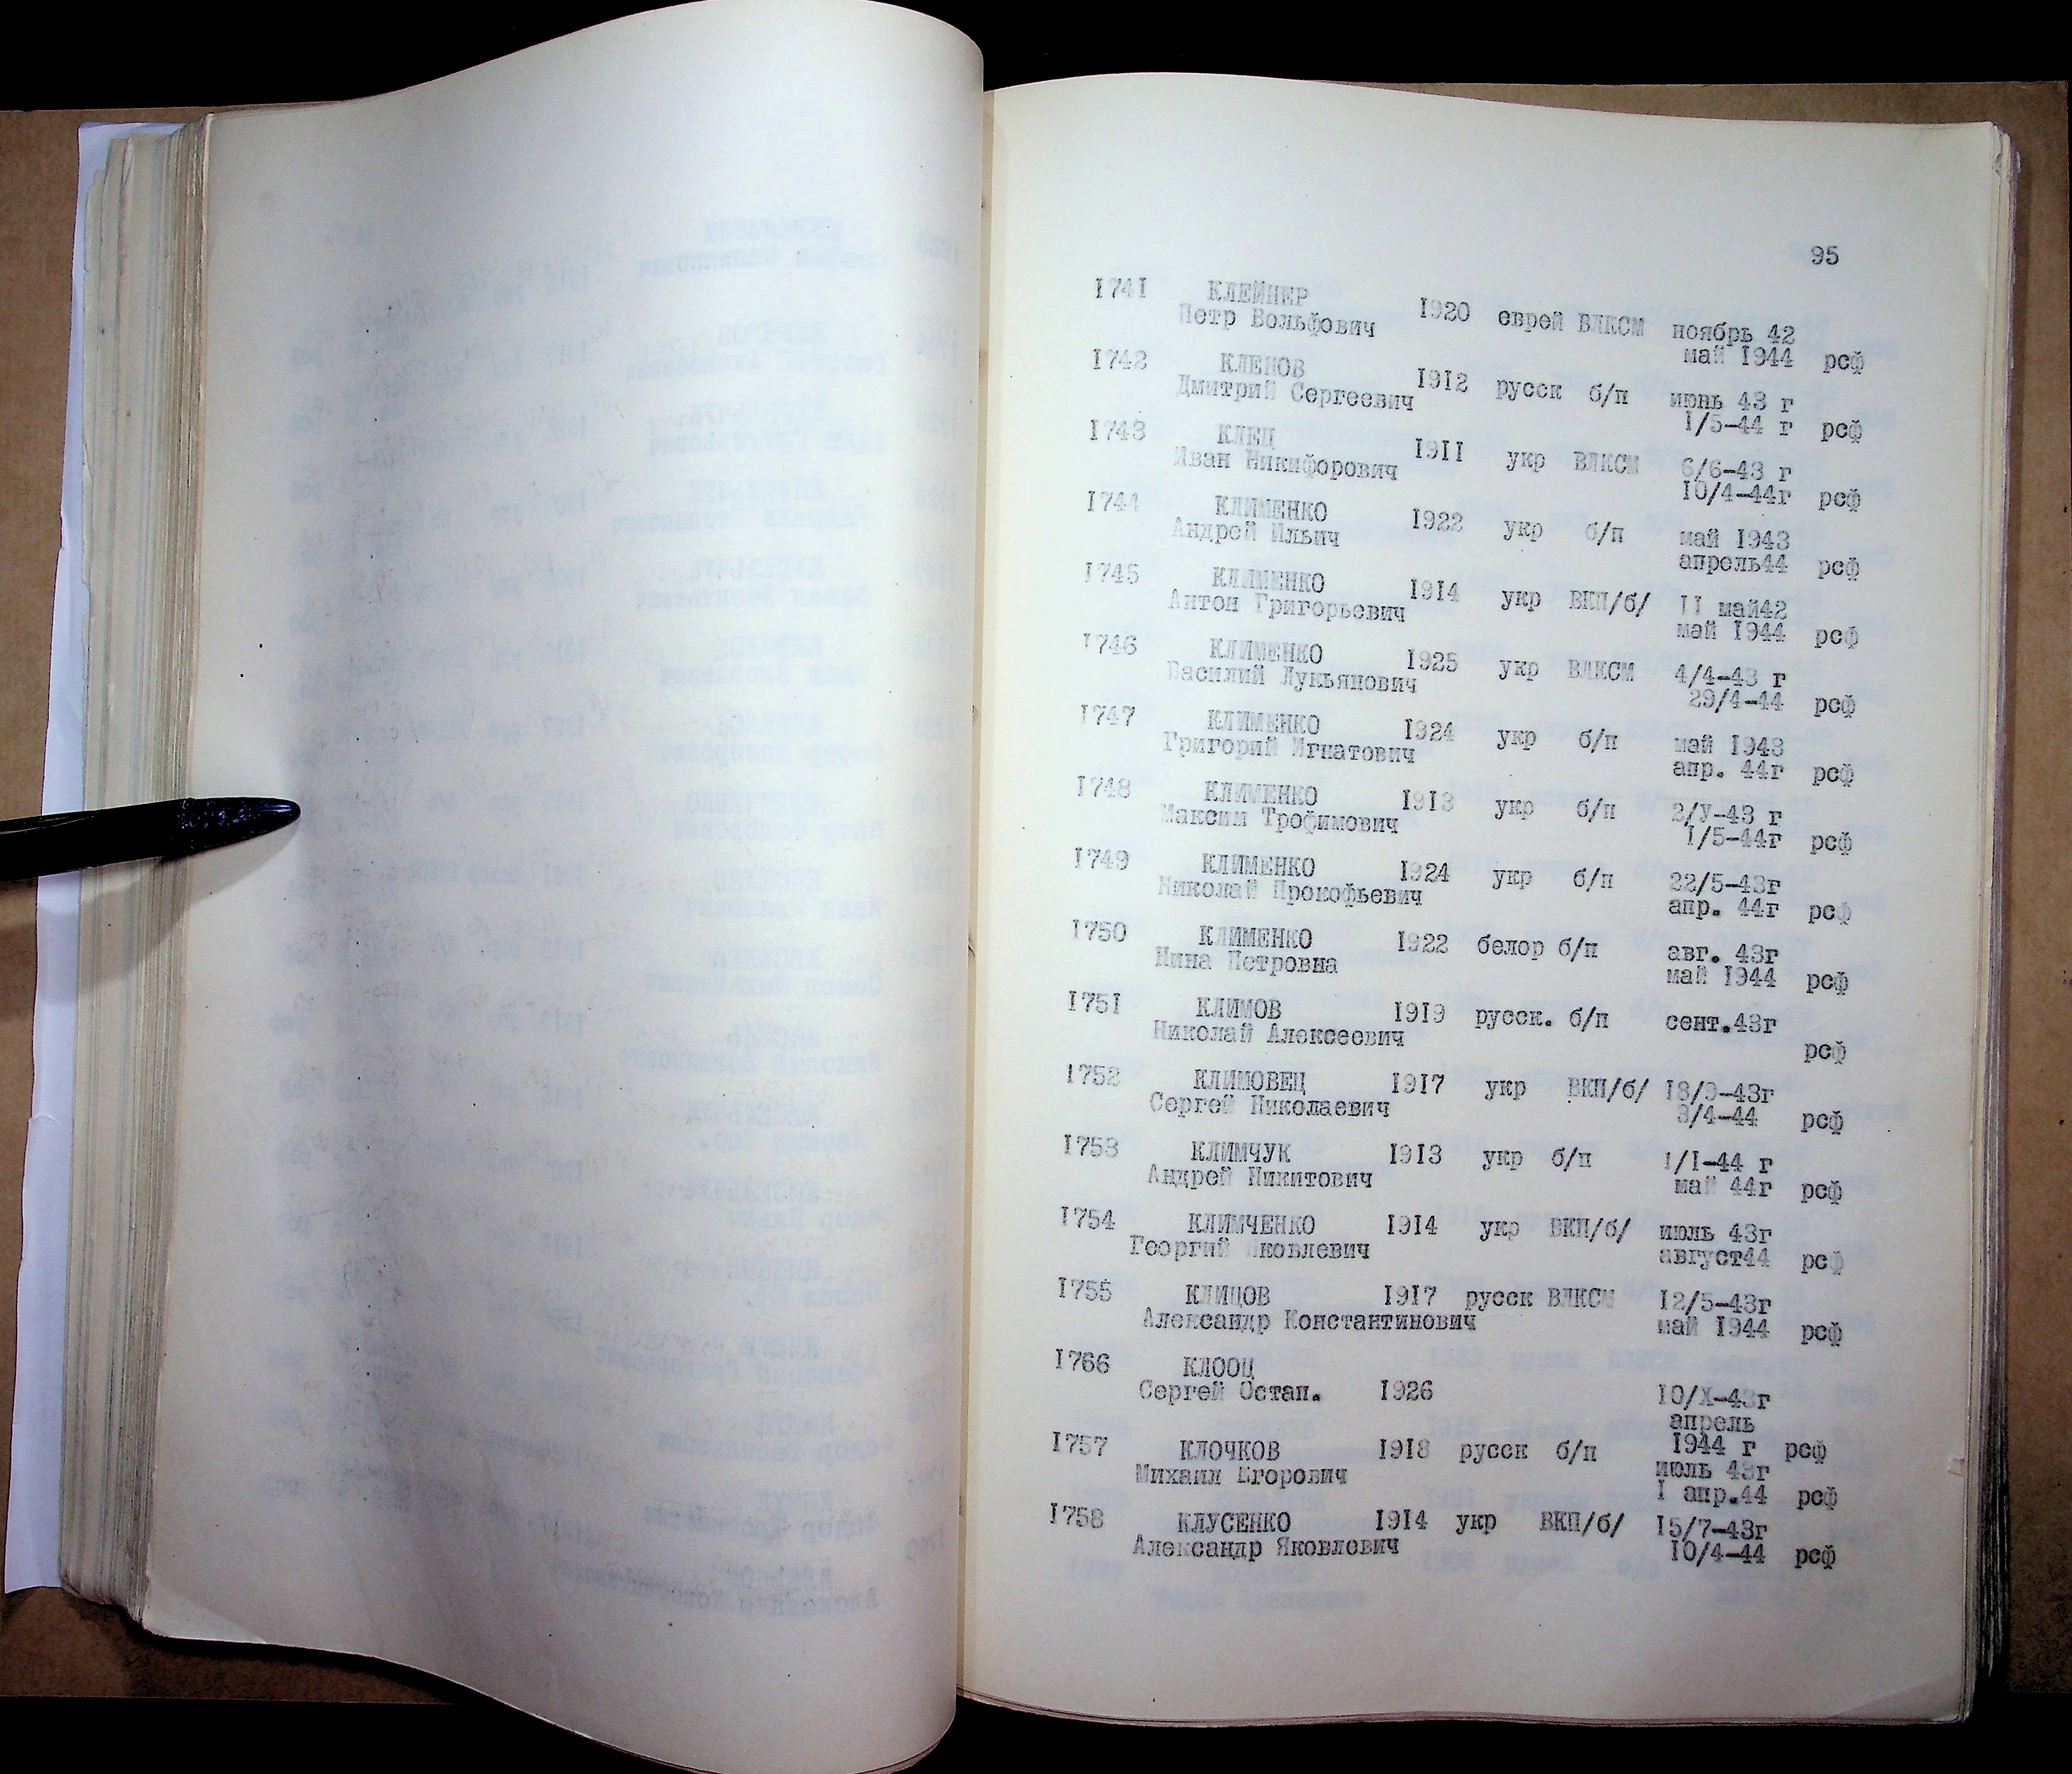 95
1741 КЛЕЙНЕР 1920 еврей ВЛКСМ ноябрь 42
Петр Вольфович май 1944 рсф
1742 КЛЕНОВ 1912 русск б/п июнь 43 г
Дмитрий Сергеевич 1/5-44 г рсф
1743 КЛЕЦ 1911 укр ВЛКСМ 6/6-43 г
Иван Никифорович 10/4-44г рсф
1744 КЛИМЕНКО 1922 укр б/п май 1943
Андрей Ильич апрель44 рсф
1745 КЛИМЕНКО 1914 укр ВКП/б/ 11 май42
Антон Григорьевич май 1944 рсф
1746 КЛИМЕНКО 1925 укр ВЛКСМ 4/4-43 г
Василий Лукьянович 29/4-44 рсф
1747 КЛИМЕНКО 1924 укр б/п май 1943
Григорий Игнатович апр. 44г рсф
1748 КЛИМЕНКО 1913 укр б/п 2/У-43 г
Максим Трофимович 1/5-44г рсф
1749 КЛИМЕНКО 1924 укр б/п 22/5-43г
Николай Прокофьевич апр. 44г рсф
1750 КЛИМЕНКО 1922 белор б/п авг. 43г
Нина Петровна май 1944 рсф
1751 КЛИМОВ 1919 русск. б/п сент.43г
Николай Алексеевич рсф
1752 КЛИМОВЕЦ 1917 укр ВКП/б/ 18/9-43г
Сергей Николаевич 3/4-44 рсф
1753 КЛИМЧУК 1913 укр б/п 1/1-44 г
Андрей Никитович май 44г рсф
1754 КЛИМЧЕНКО 1914 укр ВКП/б/ июль 43г
Георгий Яковлевич август44 рсф
1755 КЛИЦОВ 1917 русск ВЛКСМ 12/5-43г
Александр Константинович май 1944 рсф
1766 КЛООЦ
Сергей Остап. 1926 10/Х-43г
апрель
1944 г рсф
1757 КЛОЧКОВ 1918 русск б/п июль 43г
Михаил Егорович 1 апр.44 рсф
1758 КЛУСЕНКО 1914 укр ВКП/б/ 15/7-43г
Александр Яковлевич 10/4-44 рсф